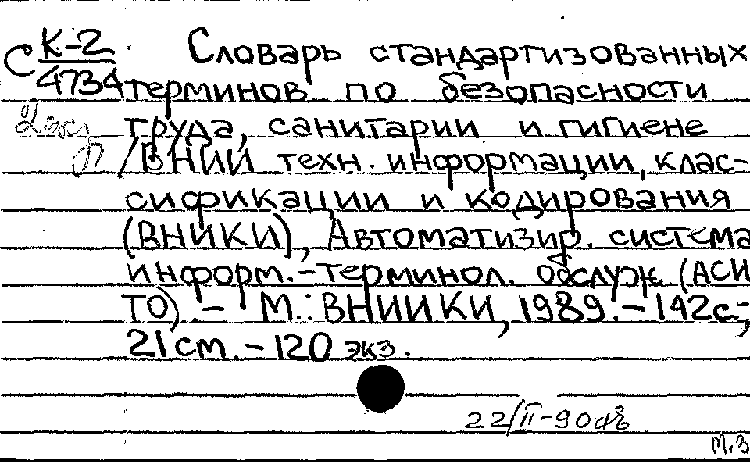 С К-2 Словарь стандартизованных
4734 терминов по безопасности
2 экз труда, санитарии и гигиене
/ВНИИ техн. информации, клас-
сификации и кодирования
(ВНИКИ), Автоматизир. система
информ.-терминол. обслуж (АСИ
ТО). - М.: ВНИИКИ, 1989. - 142с.;
21 см. - 120 экз.
22/II-90